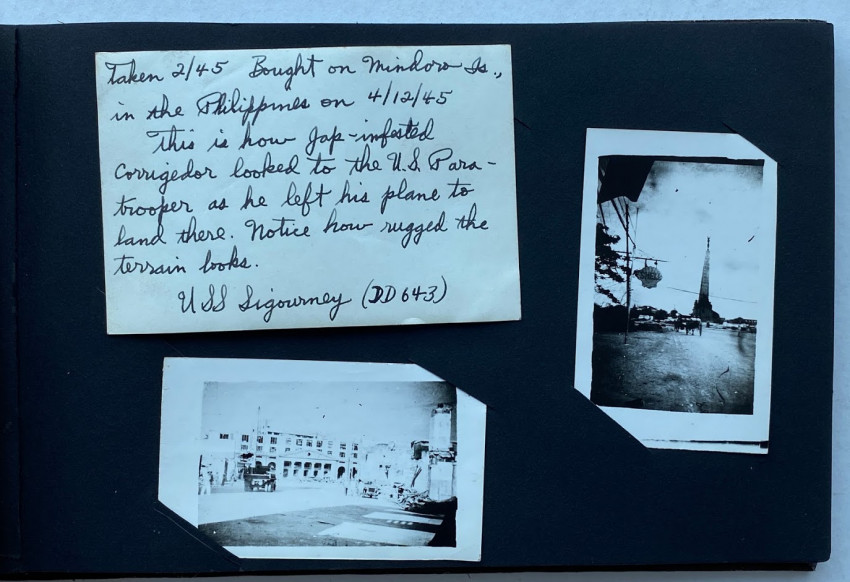 Taken 2/45 Bought on Mindoro Is.,
in the Philippines on 4/12/45
This is how Jap-infested
Corrigedor looked to the U.S. Para-
trooper as he left his plane to
land there. Notice how rugged the
terrain looks.
USS Sigourney (DD643)